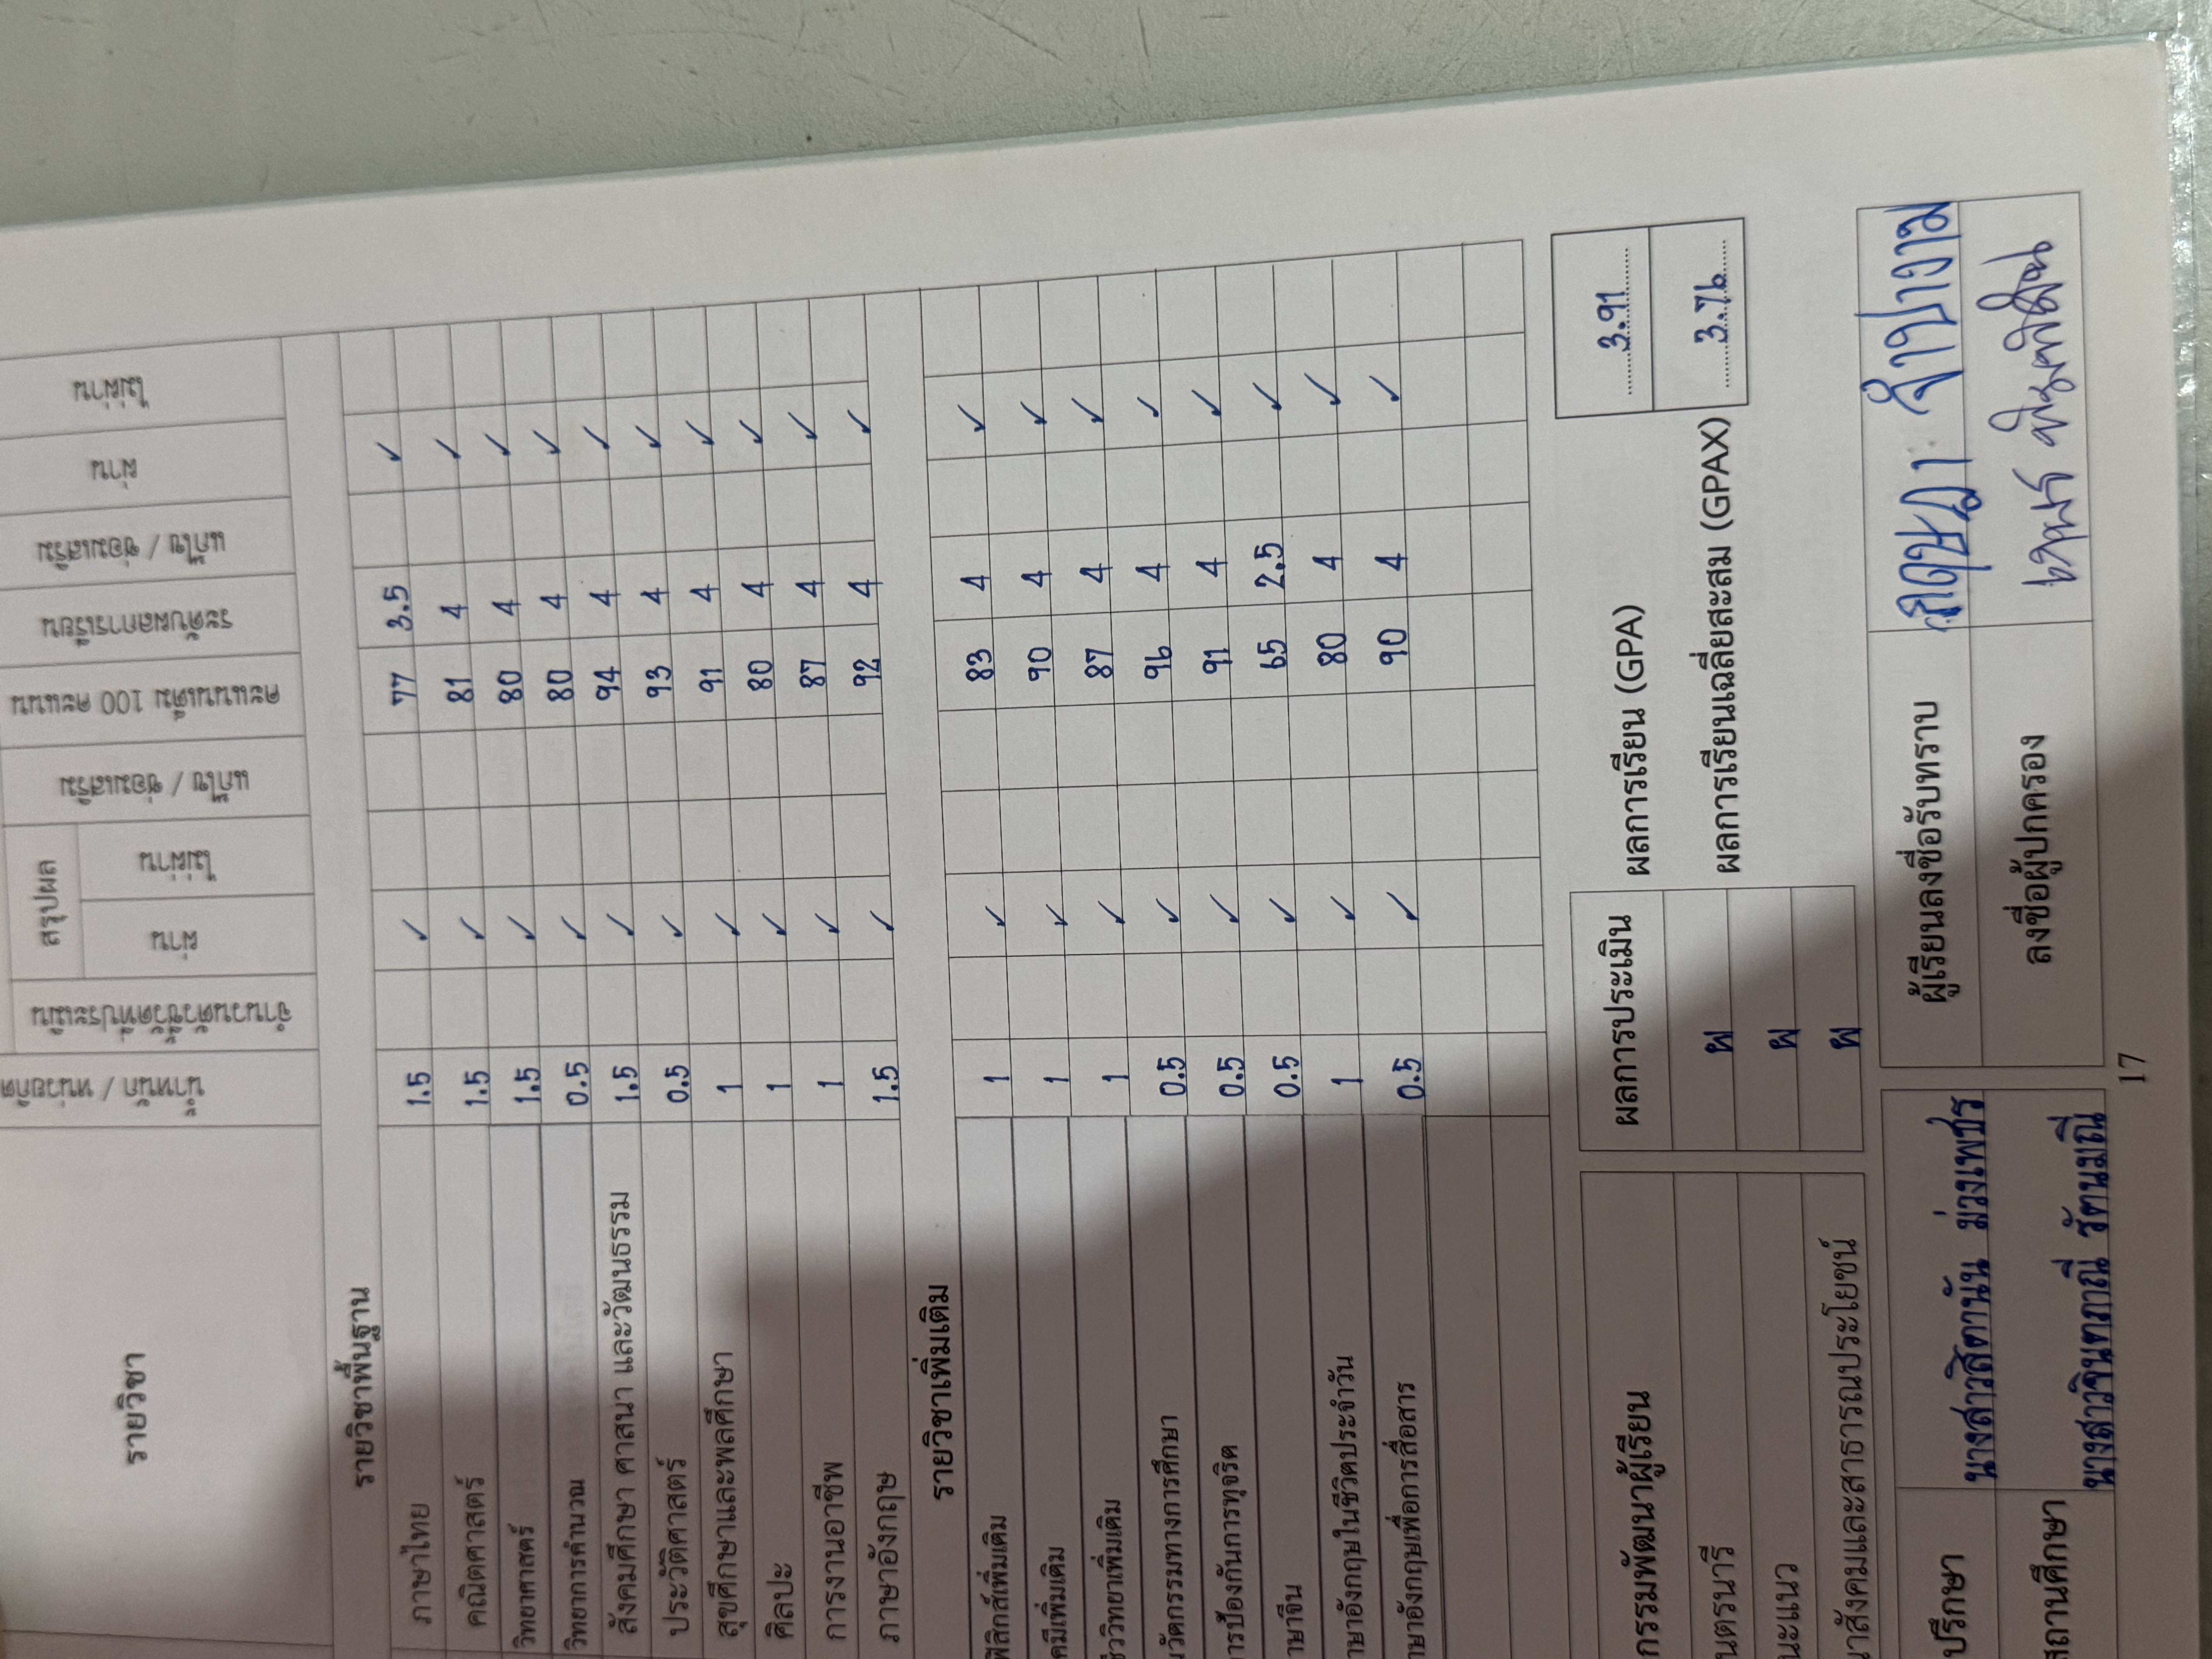 รายวิชา น้ำหนัก / หน่วยกิต จำนวนตัวชี้วัดที่ประเมิน สรุปผล ผ่าน ไม่ผ่าน แก้ไข / ซ่อมเสริม คะแนนเต็ม 100 คะแนน ระดับผลการเรียน แก้ไข / ซ่อมเสริม ผ่าน ไม่ผ่าน
รายวิชาพื้นฐาน
ภาษาไทย 1.5 ✓ 77 3.5 ✓
คณิตศาสตร์ 1.5 ✓ 81 4 ✓
วิทยาศาสตร์ 1.5 ✓ 80 4 ✓
วิทยาการคำนวณ 0.5 ✓ 80 4 ✓
สังคมศึกษา ศาสนา และวัฒนธรรม 1.5 ✓ 94 4 ✓
ประวัติศาสตร์ 0.5 ✓ 93 4 ✓
สุขศึกษาและพลศึกษา 1 ✓ 91 4 ✓
ศิลปะ 1 ✓ 80 4 ✓
การงานอาชีพ 1 ✓ 87 4 ✓
ภาษาอังกฤษ 1.5 ✓ 92 4 ✓
รายวิชาเพิ่มเติม
ฟิสิกส์เพิ่มเติม 1 ✓ 83 4 ✓
เคมีเพิ่มเติม 1 ✓ 90 4 ✓
ชีววิทยาเพิ่มเติม 1 ✓ 87 4 ✓
นวัตกรรมทางการศึกษา 0.5 ✓ 96 4 ✓
การป้องกันการทุจริต 0.5 ✓ 91 4 ✓
ภาษาจีน 0.5 ✓ 65 2.5 ✓
ภาษาอังกฤษในชีวิตประจำวัน 1 ✓ 80 4 ✓
ภาษาอังกฤษเพื่อการสื่อสาร 0.5 ✓ 90 4 ✓
กรรมพัฒนาผู้เรียน ผลการประเมิน
นตรนารี ผ
นะแนว ผ
นาสังคมและสาธารณประโยชน์ ผ
ผลการเรียน (GPA) 3.91
ผลการเรียนเฉลี่ยสะสม (GPAX) 3.76
ปรึกษา นางสาวสิตานัน ม่วงเพชร ผู้เรียนลงชื่อรับทราบ
สถานศึกษา นางสาวจินตภาณี รัตนมณี ลงชื่อผู้ปกครอง
17